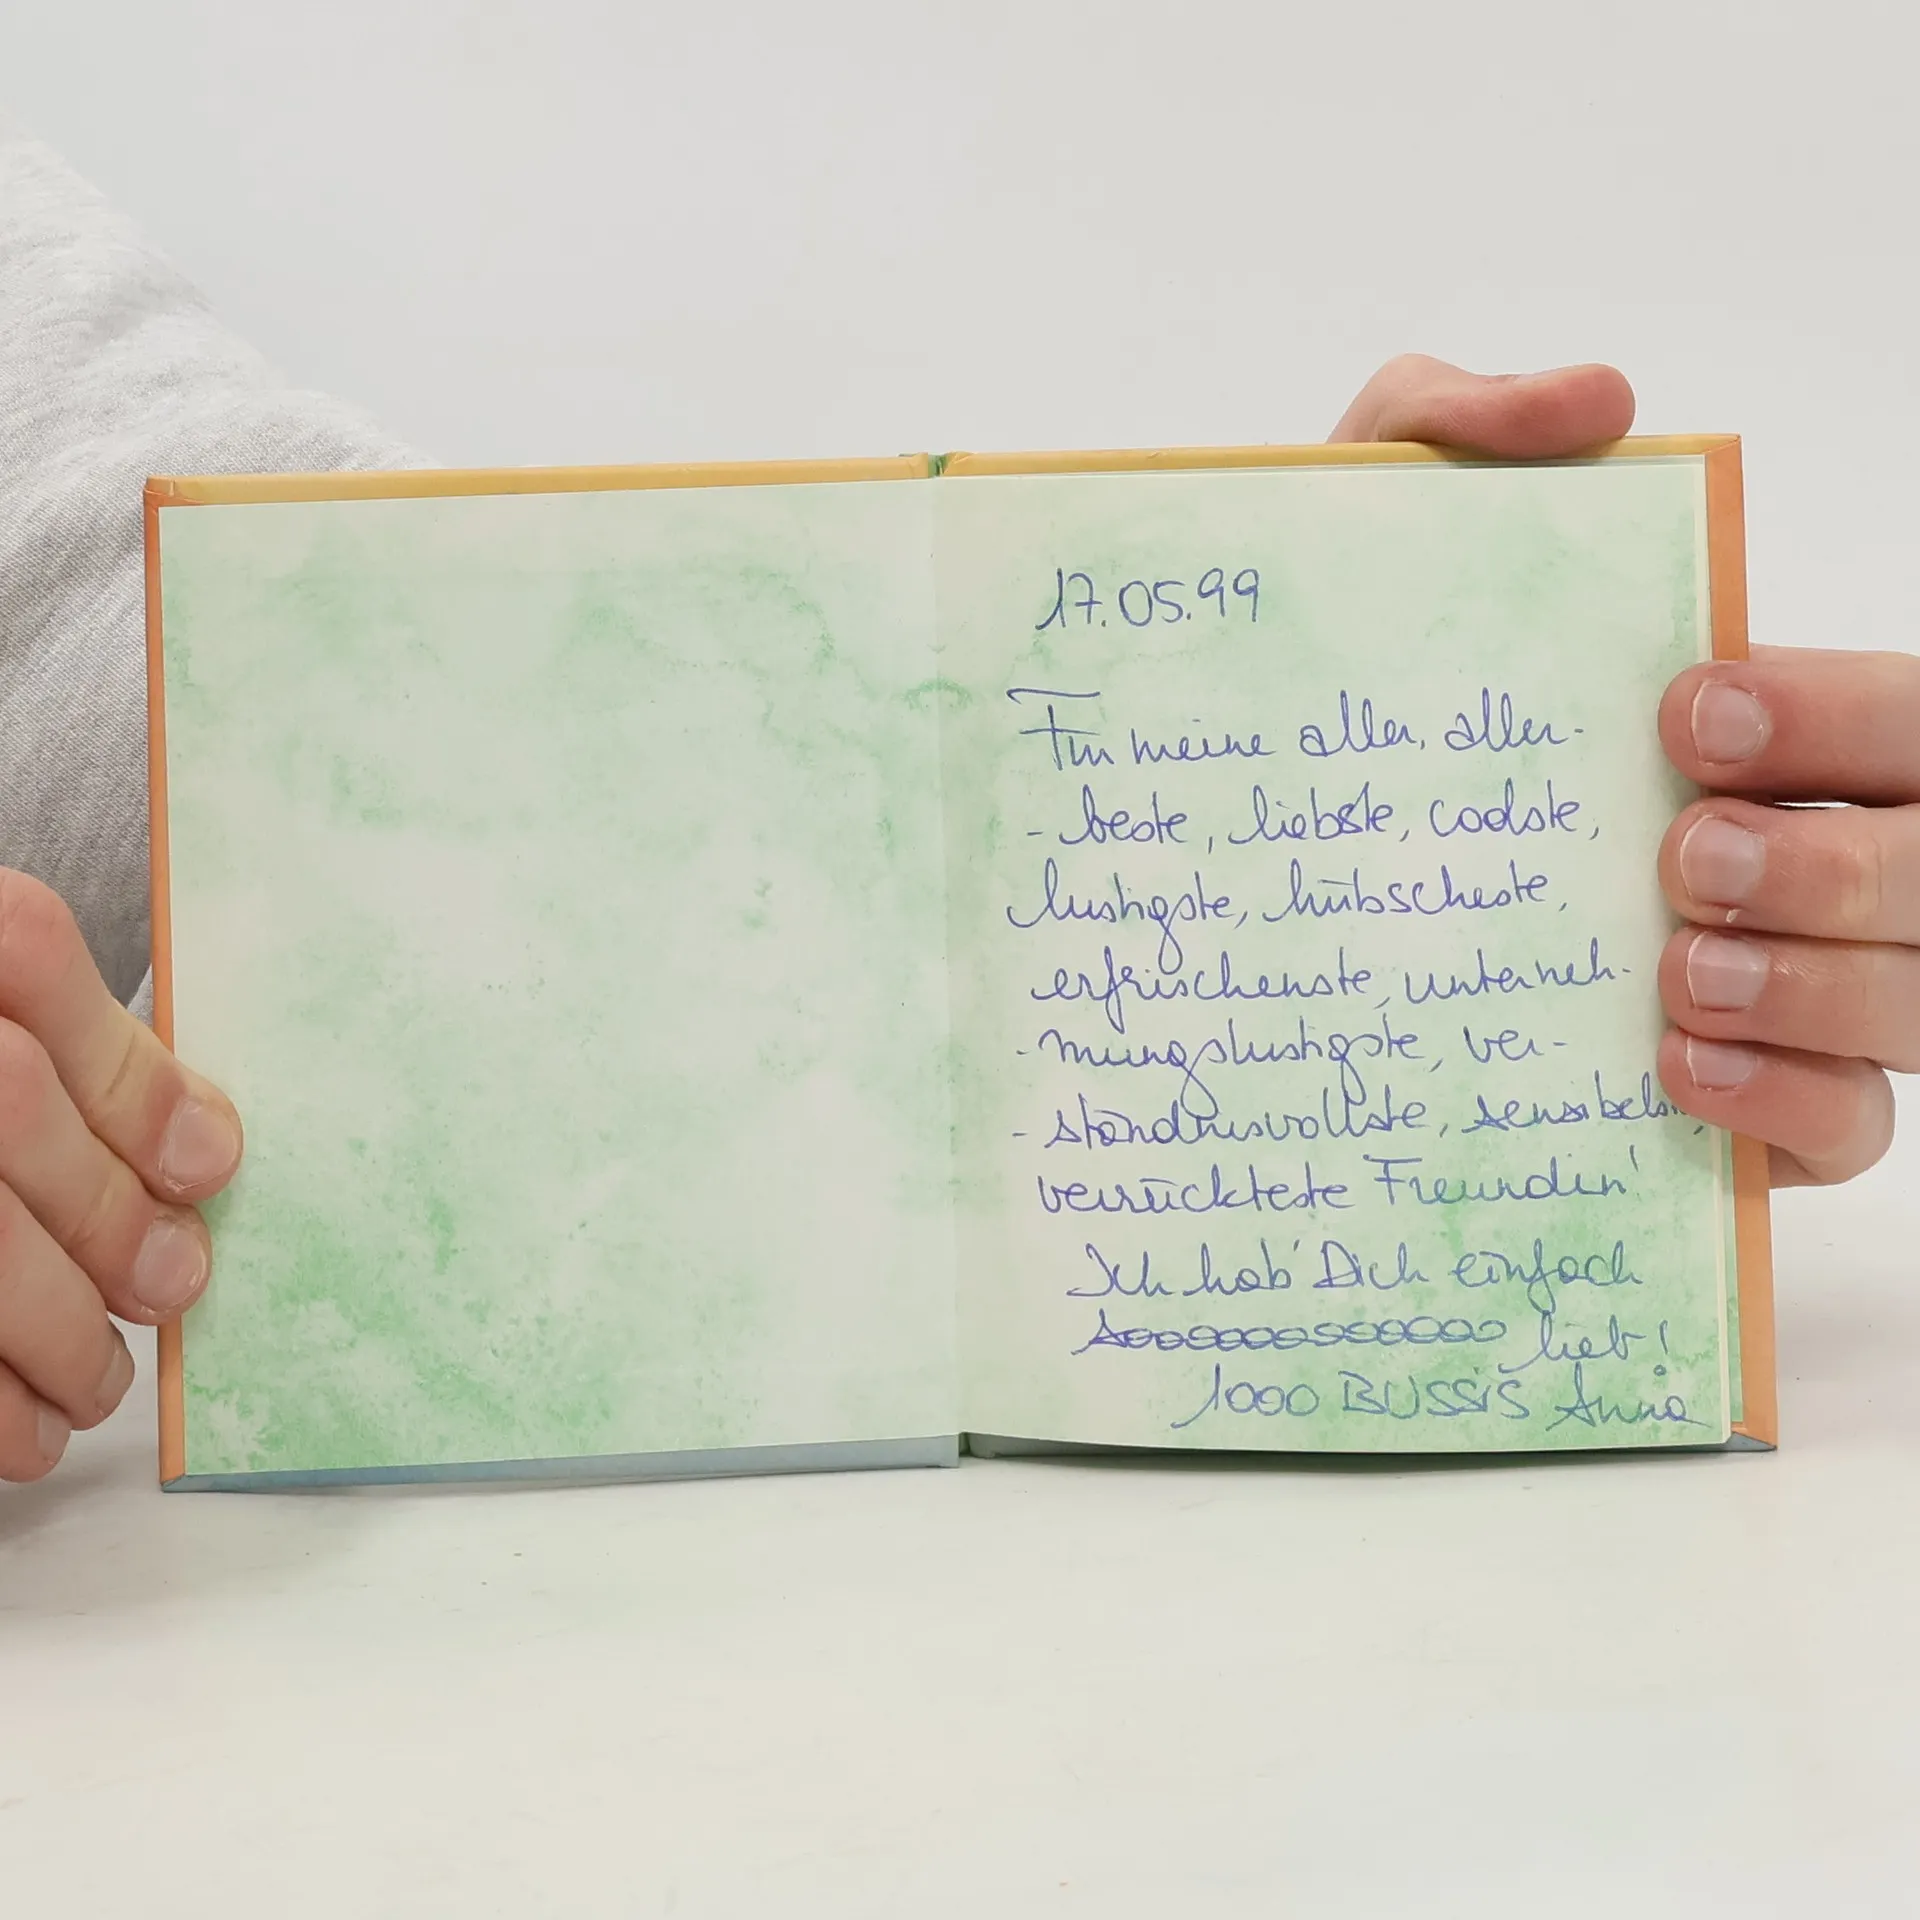 17.05.99
Für meine aller, aller-
- beste, liebste, coolste,
lustigste, hübscheste,
erfrischenste, unterneh-
- mungslustigste, ver-
- ständnisvollste, sensibelste,
verrückteste Freundin!
Ich hab' Dich einfach
soooooooooooo lieb!
1000 BUSSIS Anna